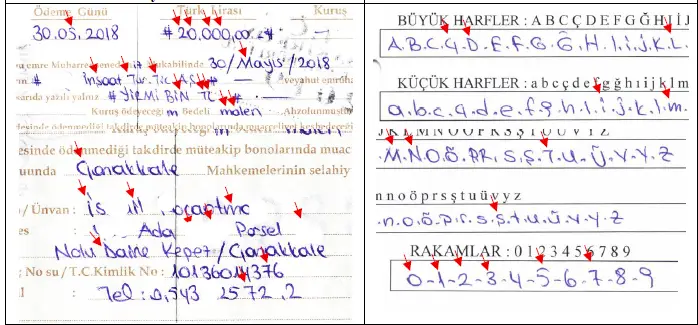 Ödeme Günü Türk Lirası Kuruş
30.05.2018 # 20.000,00 #
30/Mayıs/2018
# İnşaat Tur. Tic A.Ş #
veyahut emrüha
yalnız # YİRMİ BİN TL #
Kuruş ödeyeceğim Bedeli malen Ahzolunmuştur
esinde ödenmediği takdirde müteakip bonolarında muac
Çanakkale Mahkemelerinin selahiy
/ Ünvan : İş
Ada Parsel
Nolu Daire Kepez / Çanakkale
No su / T.C.Kimlik No : 10136014376
Tel : 0,543 2572,2
BÜYÜK HARFLER : A B C Ç D E F G Ğ H I İ J
A.B.C.Ç.D.E.F.G.Ğ.H.I.İ.J.K.L.
KÜÇÜK HARFLER : a b c ç d e f g ğ h ı i j k l m
a.b.c.ç.d.e.f.g.h.ı.i.j.k.l.m.
J K L M N O Ö P R S Ş T U Ü V Y Z
M.N.O.Ö.P.R.S.Ş.T.U.Ü.V.Y.Z
n n o ö p r s ş t u ü v y z
n.o.ö.p.r.s.ş.t.u.ü.v.y.z
RAKAMLAR : 0 1 2 3 4 5 6 7 8 9
0-1-2-3-4-5-6-7-8-9